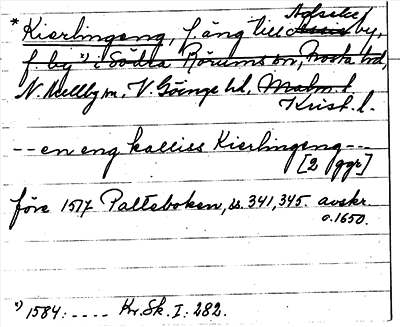 * Kierlingeng, f. äng till Nafsele/ by,
f. by *) i Södra Rörums sn, Frosta hd,
N. Mellby sn, V. Göinge hd, Malm. l.
Krist. l.
-- en eng kalliss Kierlingeng ---
[2 ggr]
före 1517 Palteboken, s. 341, 345. avskr.
o. 1650.
*) 1584: ---- Kr. Sk. I: 282.